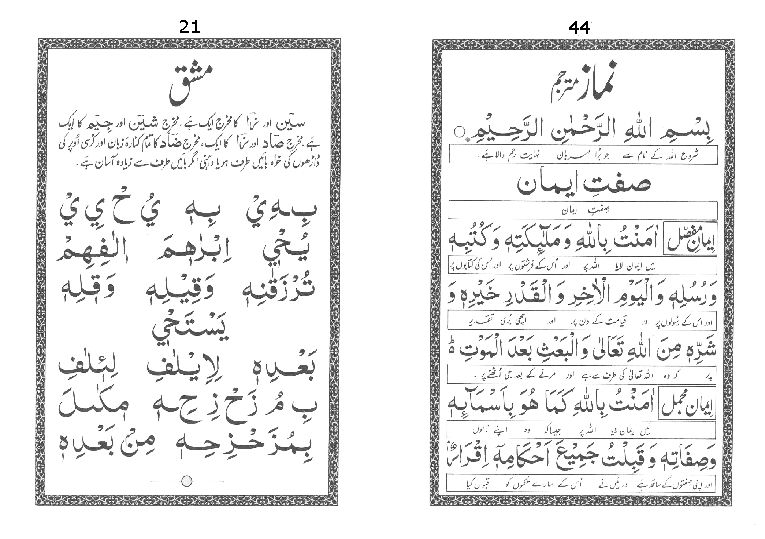 21
مشق
سین اور زا کا مخرج ایک ہے، مخرج شین اور جیم کا ایک
ہے۔ مخرج صاد اور زا کا ایک، مخرج ضاد کا تمام کنارہ زبان اور کرسی اوپر کی
ڈاڑھوں کی خواہ بائیں طرف ہو یا داہنی مگر بائیں طرف سے زیادہ آسان ہے۔
بِہٖیْ بِہٖ یُ حْ یِ یْ
یُحْیٖ اِبْرٰهٖمَ اٖلٰفِهِمْ
تُرْزَقٰنِهٖ وَقِیْلِهٖ وَقَلِهٖ
یَسْتَحْیٖ
بَعْدِهٖ لِاِیْلٰفِ لِئِلٰفِ
بِ مُ زَحْ زِحِ هٖ
بِمُزَحْزِحِهٖ مِنْ بَعْدِهٖ
44
نماز مترجم
بِسْمِ اللهِ الرَّحْمٰنِ الرَّحِیْمِ
شروع اللہ کے نام سے جو بڑا مہربان نہایت رحم والا ہے۔
صفتِ ایمان
صفتِ ایمان
ایمان مفصّل اٰمَنْتُ بِاللهِ وَمَلٰٓئِکَتِهٖ وَکُتُبِهٖ
میں ایمان لایا اللہ پر اور اُس کے فرشتوں پر اور اُس کی کتابوں پر
وَرُسُلِهٖ وَالْیَوْمِ الْاٰخِرِ وَالْقَدْرِ خَیْرِهٖ وَ
اور اس کے رسولوں پر اور قیامت کے دن پر اور اچھی بُری تقدیر
شَرِّهٖ مِنَ اللهِ تَعَالٰی وَالْبَعْثِ بَعْدَ الْمَوْتِ ط
پر کہ وہ اللہ تعالیٰ کی طرف سے ہے اور مرنے کے بعد جی اُٹھنے پر۔
ایمان مجمل اٰمَنْتُ بِاللهِ کَمَا هُوَ بِاَسْمَآئِهٖ
میں ایمان لایا اللہ پر جیسا کہ وہ اپنے ناموں
وَصِفَاتِهٖ وَقَبِلْتُ جَمِیْعَ اَحْکَامِهٖ اِقْرَارٌ
اور اپنی صفتوں کے ساتھ ہے اور میں نے اُس کے سارے حکموں کو قبول کیا